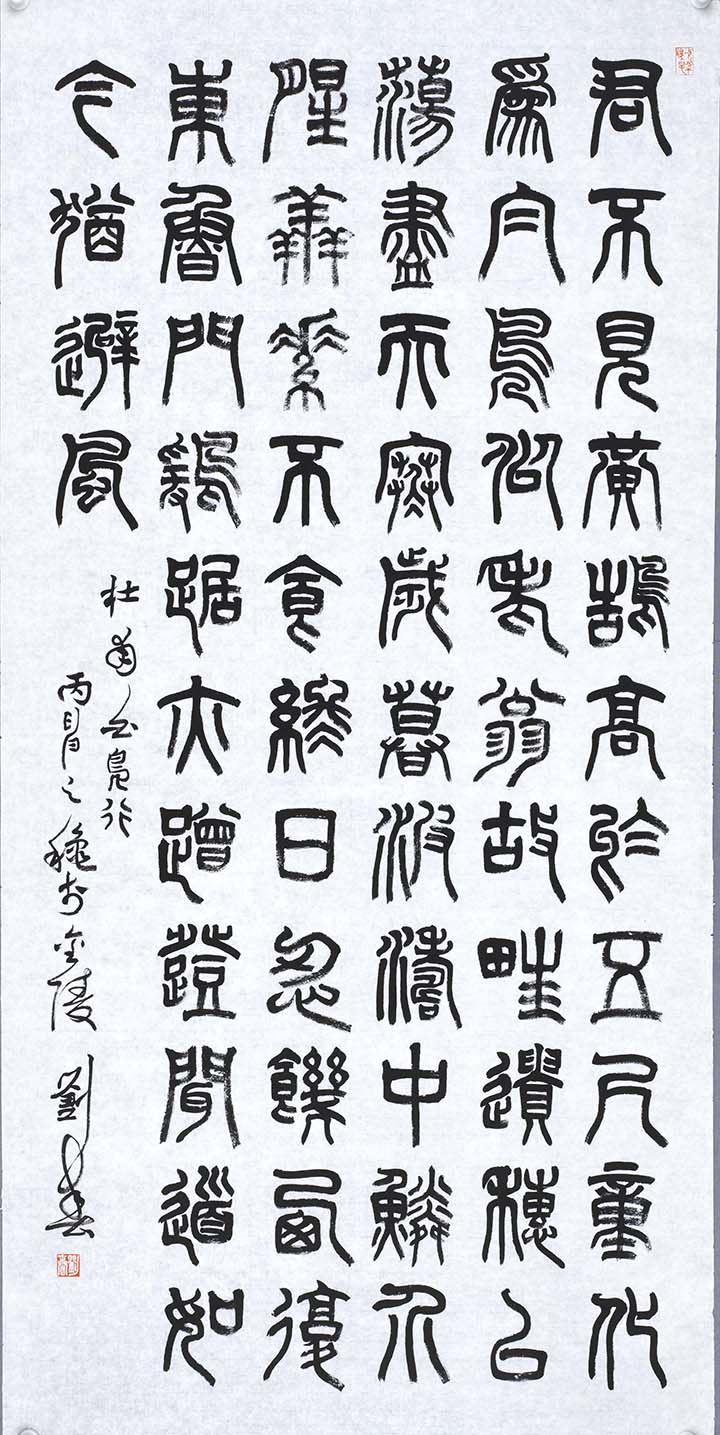 君不見黃鵠高於五尺童化
為白鳧似老翁故畦遺穗已
蕩盡天寒歲暮波濤中鱗介
腥羴素不食終日忍饑西復
東魯門鷄踞亦蹭蹬聞道如
今猶避風
杜甫白鳧行
丙之穐於金陵 劉